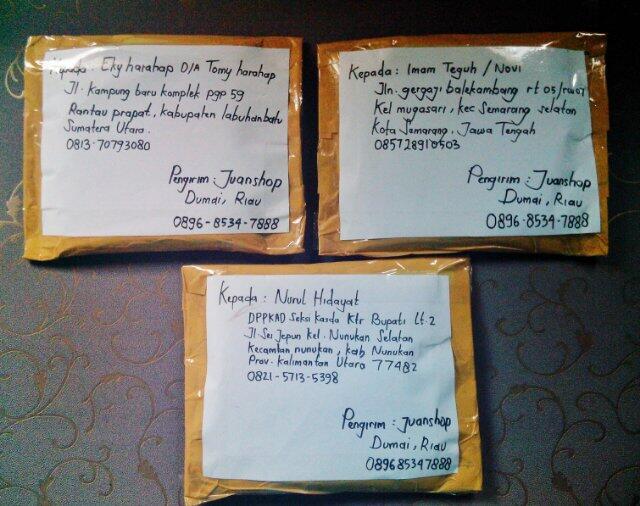 Kepada : Eky harahap D/A Tomy harahap
Jl. Kampung baru komplek pgp 59
Rantau prapat, kabupaten labuhanbatu
Sumatera Utara.
0813-70793080
Pengirim : Juanshop
Dumai, Riau
0896-8534-7888
Kepada : Imam Teguh / Novi
Jln. gergaji balekambang rt 05/rw07
Kel mugasari, kec Semarang selatan
Kota Semarang, Jawa Tengah
085728910503
Pengirim : Juanshop
Dumai, Riau
0896-8534-7888
Kepada : Nurul Hidayat
DPPKAD Seksi Kasda Ktr Bupati Lt.2
Jl. Sei Jepun kel. Nunukan Selatan
Kecamtan nunukan, kab Nunukan
Prov. kalimantan Utara 77482
0821-5713-5398
Pengirim : Juanshop
Dumai, Riau
089685347888